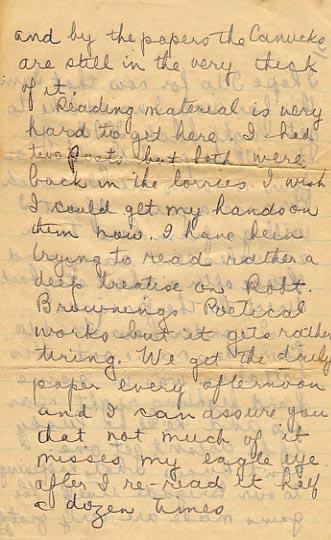 and by the papers the Canucks
are still in the very thick
of it.
Reading material is very
hard to get here. I had
two Posts but both were
back in the lorries. I wish
I could get my hands on
them now. I have been
trying to read rather a
deep treatise on Robt.
Brownings Poetical
works but it gets rather
tiring. We get the daily
paper every afternoon
and I can assure you
that not much of it
misses my eagle eye
after I re-read it half
a dozen times